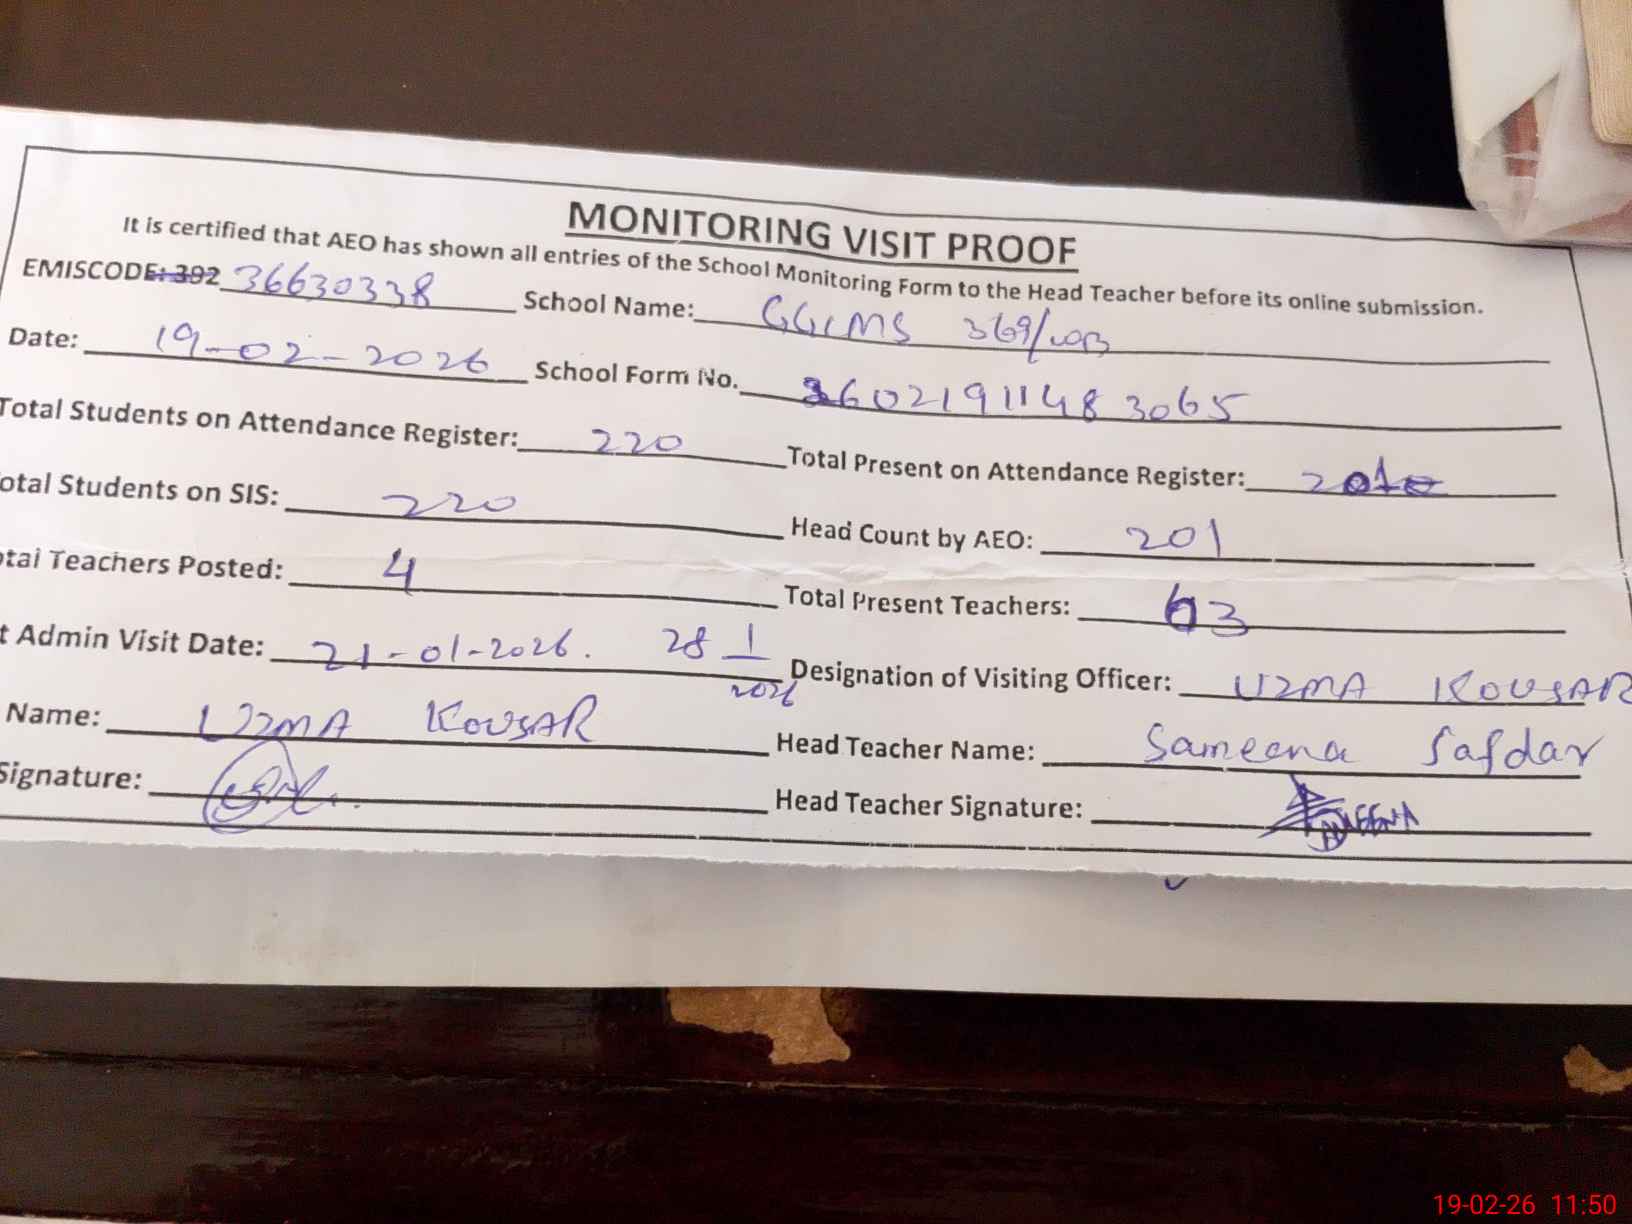 MONITORING VISIT PROOF
It is certified that AEO has shown all entries of the School Monitoring Form to the Head Teacher before its online submission.
EMISCODE: 392 36630338 School Name: GGCMS 369/WB
Date: 19-02-2026 School Form No. 3602191148 3065
Total Students on Attendance Register: 220 Total Present on Attendance Register: 201
otal Students on SIS: 220 Head Count by AEO: 201
otal Teachers Posted: 4 Total Present Teachers: 3
t Admin Visit Date: 21-01-2026. 28 1 2026 Designation of Visiting Officer: UZMA KOUSAR
Name: UZMA KOUSAR Head Teacher Name: Sameena Safdar
Signature: Head Teacher Signature:
19-02-26 11:50